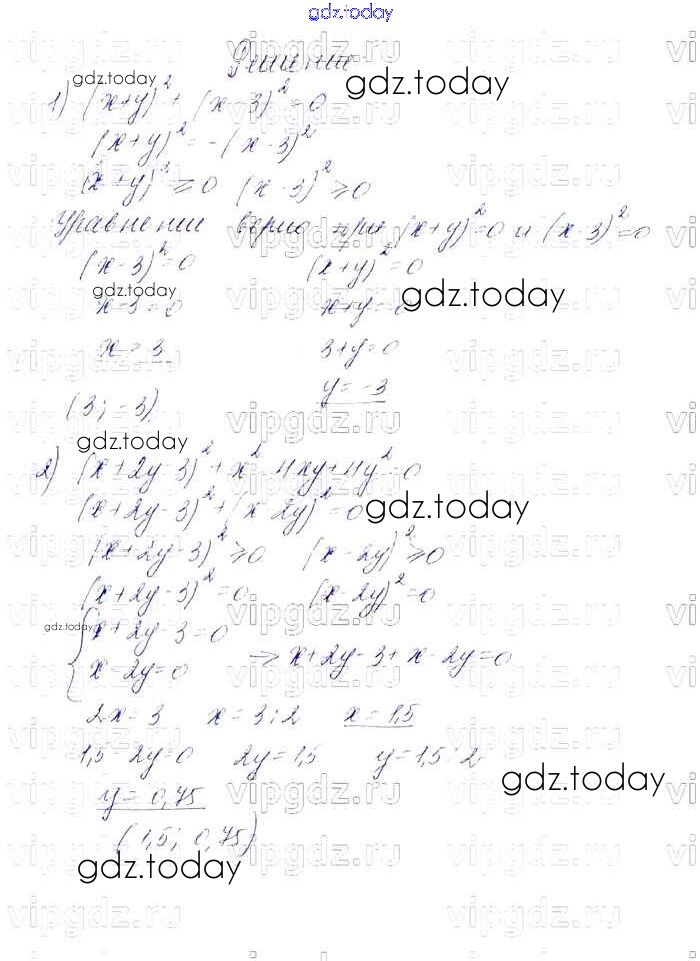 gdz.today
Решение
gdz.today
gdz.today
1) (x+y)² + (x-3)² = 0
(x+y)² = -(x-3)²
(x+y)² ≥ 0 (x-3)² ≥ 0
Уравнение верно при (x+y)²=0 и (x-3)²=0
(x-3)²=0 (x+y)²=0
gdz.today
gdz.today
x-3=0 x+y=0
x=3 3+y=0
y=-3
(3; -3)
gdz.today
2) (x+2y-3)²+x²-4xy+4y²=0
(x+2y-3)²+(x-2y)²=0
gdz.today
(x+2y-3)²≥0 (x-2y)²≥0
(x+2y-3)²=0 (x-2y)²=0
gdz.today
{x+2y-3=0
x-2y=0 => x+2y-3+x-2y=0
2x=3 x=3:2 x=1,5
1,5-2y=0 2y=1,5 y=1,5:2
gdz.today
y=0,75
(1,5; 0,75)
gdz.today
vipgdz.ru